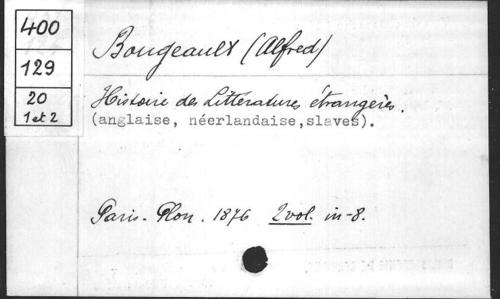 400
129
20
1 et 2
Bougeault (Alfred)
Histoire des Littératures étrangères.
(anglaise, néerlandaise,slaves).
Paris. Plon. 1876 2 vol. in-8.